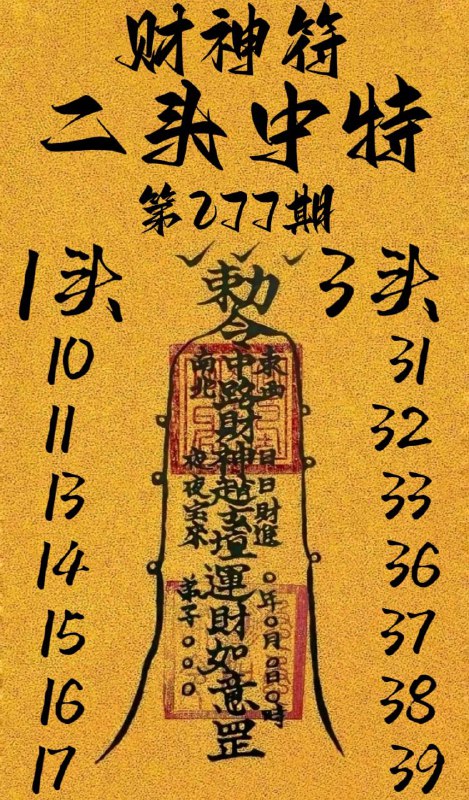 财神符
二头中特
第277期
1头
10
11
13
14
15
16
17
3头
31
32
33
36
37
38
39
勅令
中路財神趙玄壇運財如意罡
東西
南北
日日財進
夜夜宝來
〇年〇月〇日〇時
弟子〇〇〇